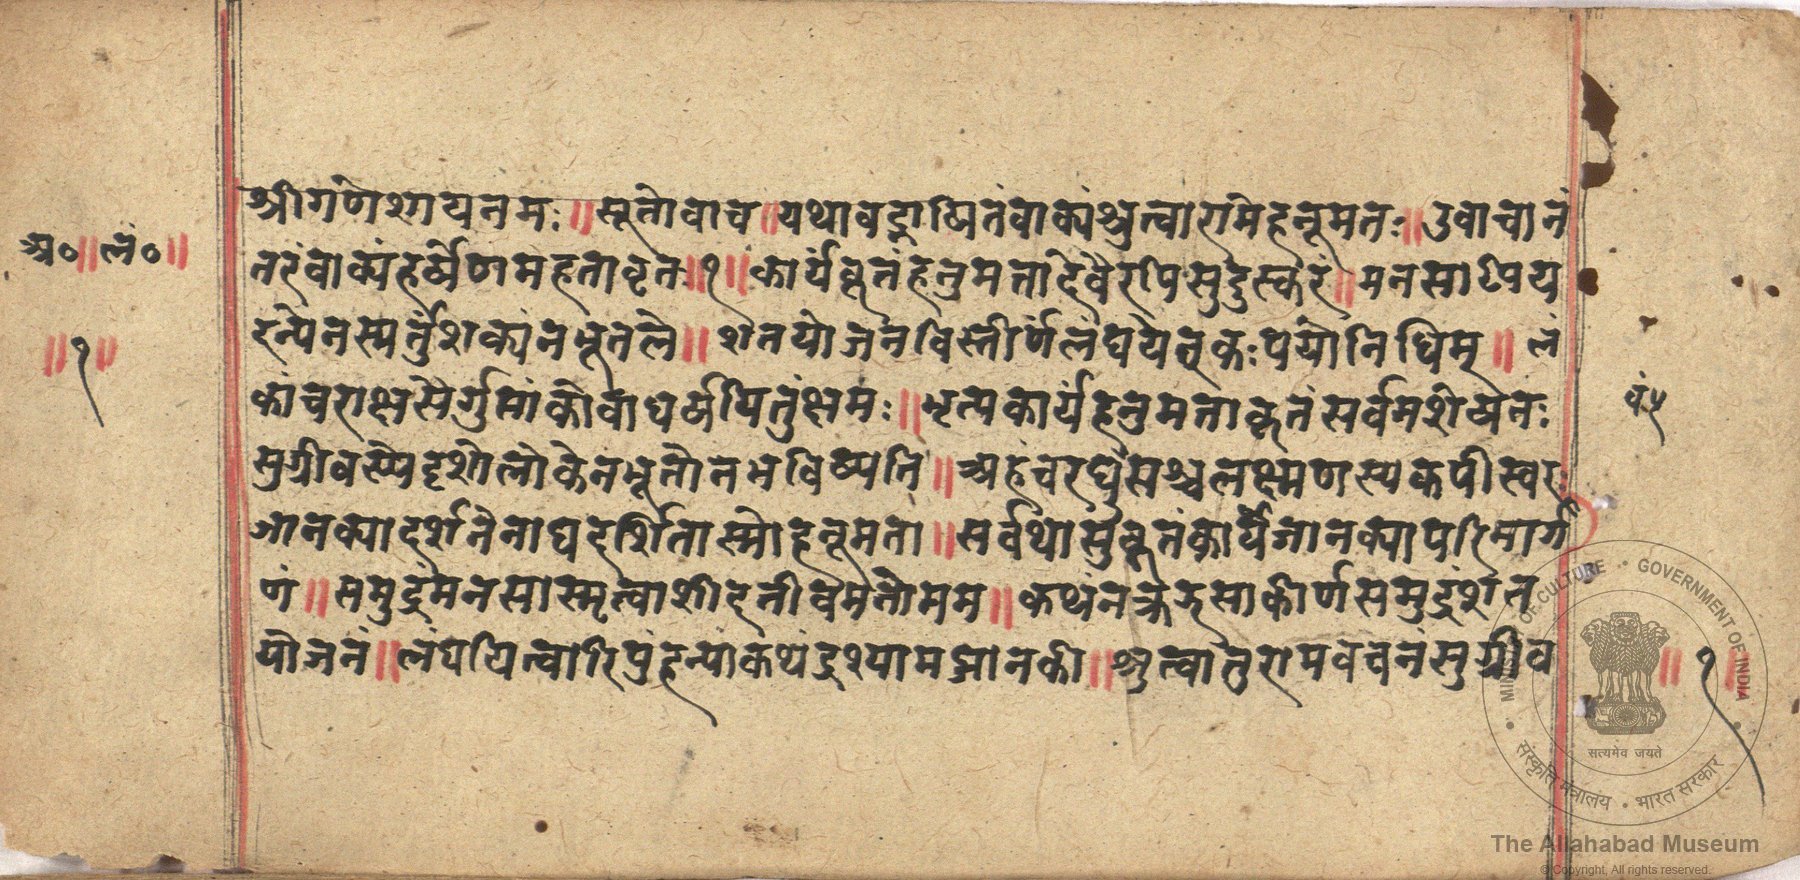 श्रीगणेशायनमः॥सूतोवाच॥यथावद्भाषितंवाक्यंश्रुत्वारामेहनूमतः॥उवाचानं
तरंवाक्यंहर्षेणमहतावृतः॥१॥कार्यंकृतंहनुमतादेवैरपिसुदुस्करं॥मनसापिय
दन्येनस्मर्तुंशक्यंनभूतले॥शतयोजनविस्तीर्णंलंघयेत्कःपयोनिधिम्॥लं
कांचराक्षसैर्गुप्तांकोवाधर्षयितुंक्षमः॥भृत्यकार्यंहनुमताकृतंसर्वमशेषतः
सुग्रीवस्येदृशोलोकेनभूतोनभविष्यति॥अहंचरघुवंसश्चलक्ष्मणस्यकपीस्वरः
जानक्यादर्शनेनाघदर्शितास्मोहनूमता॥सर्वथासुकृतंकार्यंजानक्यापरिमार्ग
णं॥समुद्रंमनसास्मृत्वाशीदतीवमनोमम॥कथंनक्रझसाकीर्णसमुद्रंशत
योजनं॥लंघयित्वारिपुंहन्यांकथंद्रश्यामजानकी॥श्रुत्वातुरामवचनंसुग्रीव
अ०॥लं०॥
॥१॥
वं५
॥१॥
MINISTRY OF CULTURE • GOVERNMENT OF INDIA
सत्यमेव जयते
संस्कृति मंत्रालय • भारत सरकार
The Allahabad Museum
© Copyright, All rights reserved.